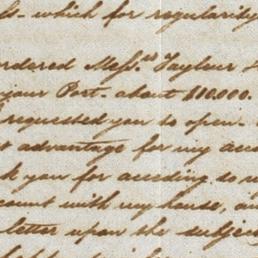 which for regularity
ordered Mess.rs Taylour
your Port. about $10.000.
requested you to open
advantage for my acc
you for acceding so
count with my house, an
letter upon the subject